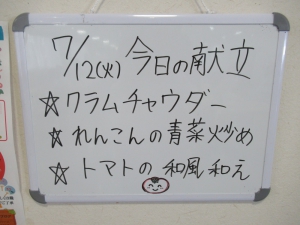 7/12(火) 今日の献立
☆クラムチャウダー
☆れんこんの青菜炒め
☆トマトの和風和え